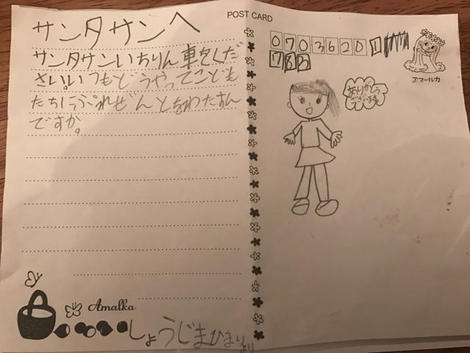 サンタサンへ
サンタサンいちりん車をくだ
さい。いつもどうやってこども
たちにうぷれぜんとをわたすん
ですか。
Amalka
しょうじまひまりより
POST CARD
0703620
ありがとう
アマールカ